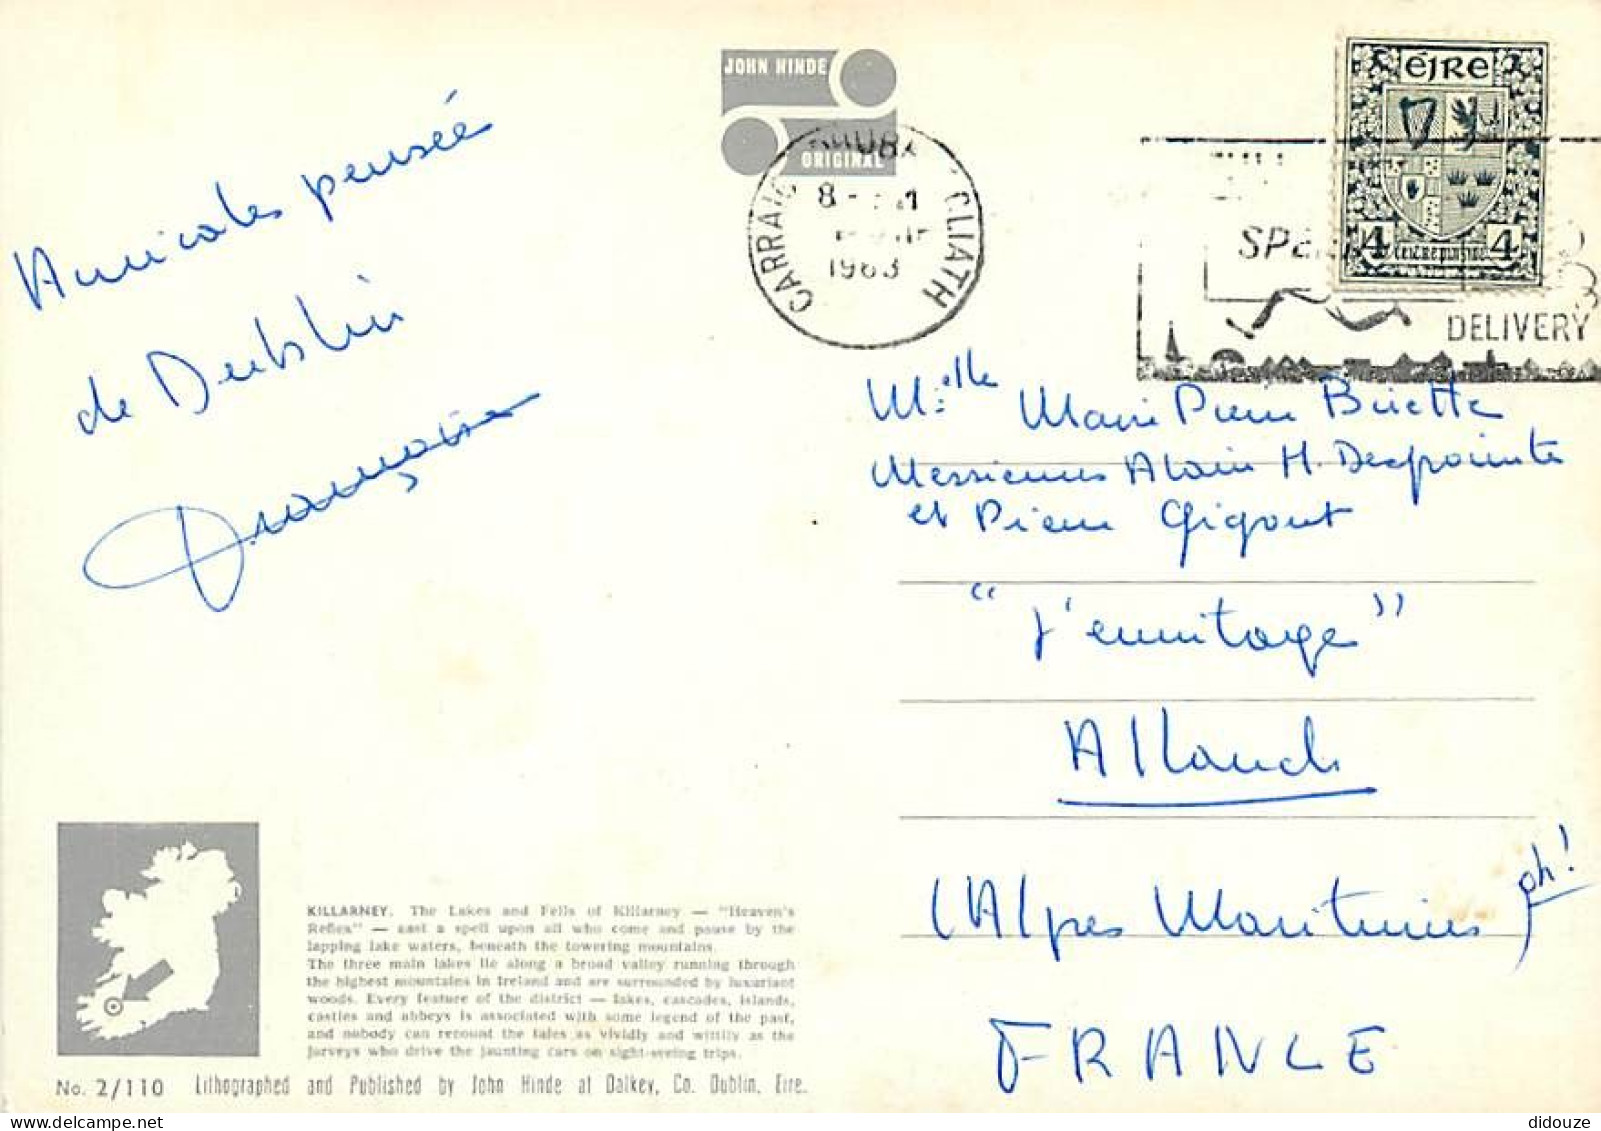 JOHN HINDE
ORIGINAL
ÉIRE
4 4
CARRAIG DHUBH CLIATH
8
1963
SPE
DELIVERY
Amicales pensée
de Dublin
Françoise
Melle Marie Pierre Briette
Messieurs Alain H. Despointe
et Pierre Gigout
"l'ermitage"
Allauch
(Alpes Maritimes) oh!
FRANCE
KILLARNEY. The Lakes and Fells of Killarney — "Heaven's
Reflex" — cast a spell upon all who come and pause by the
lapping lake waters, beneath the towering mountains.
The three main lakes lie along a broad valley running through
the highest mountains in Ireland and are surrounded by luxuriant
woods. Every feature of the district — lakes, cascades, islands,
castles and abbeys is associated with some legend of the past,
and nobody can recount the tales as vividly and wittily as the
jarveys who drive the jaunting cars on sight-seeing trips.
No. 2/110 Lithographed and Published by John Hinde at Dalkey, Co. Dublin, Eire.
didouze